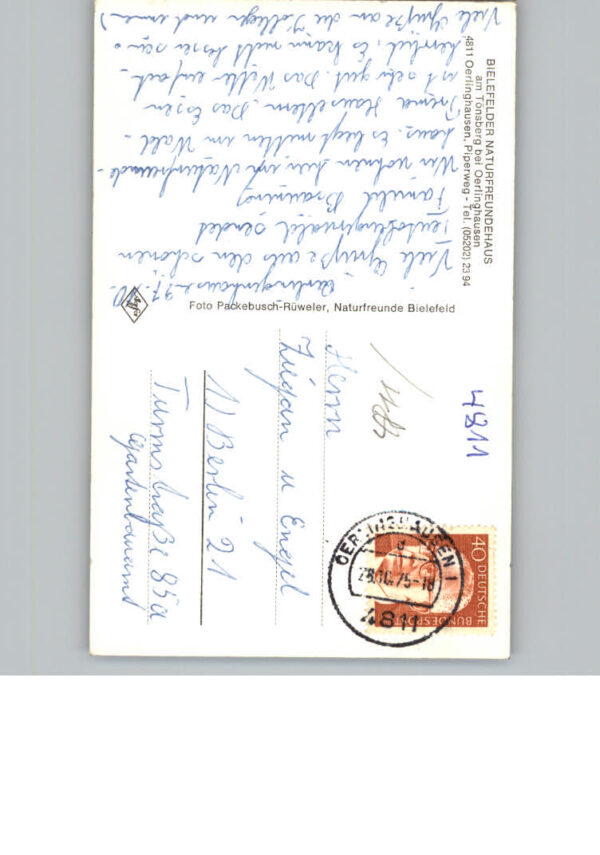 BIELEFELDER NATURFREUNDEHAUS
am Tönsberg bei Oerlinghausen
4811 Oerlinghausen, Piperweg - Tel. (05202) 23 94
Oerlinghausen
Viele Grüße aus den schönen
Teutoburgerwald sendet
Familie
Wir wohnen hier im Naturfreunde-
haus. Es liegt mitten im Wald.
Prima Hauseltern. Das Essen
ist sehr gut. Das Wetter einfach
herrlich, Es kann nicht besser sein.
Viele Grüße an die Kollegen und
Foto Packebusch-Rüweler, Naturfreunde Bielefeld
4811
Herrn
Zugan u Engel
1) Berlin 21
Turmstraße 85a
Gartenbauamt
OERLINGHAUSEN 1
a
.75-18
4811
40 DEUTSCHE
BUNDESPOST